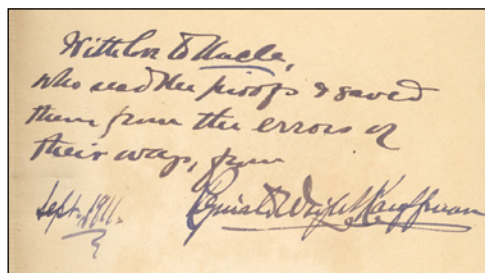 With love to Uncle,
who read the proofs & saved
them from the errors of
their ways, from
Sept. 1911. Reginald Wright Kauffman